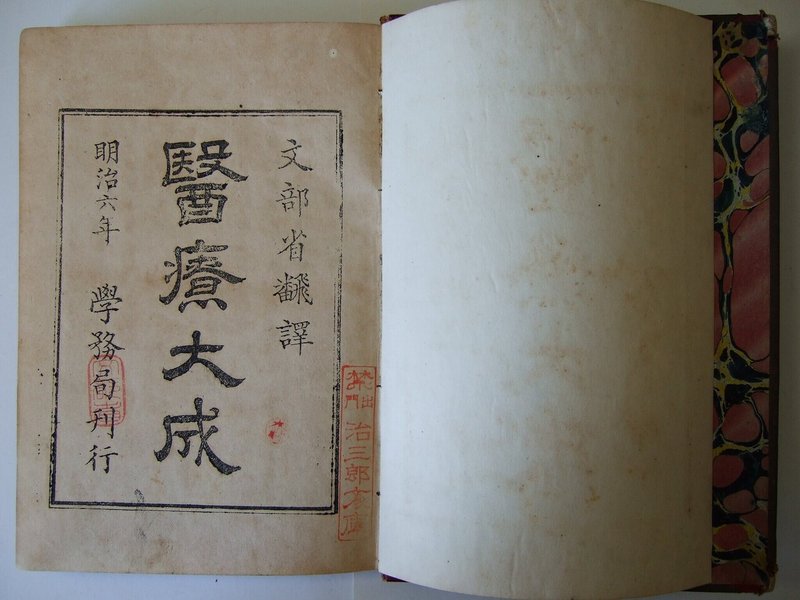 文部省飜譯
醫療大成
明治六年 學務局刊行
禁出門
治三郎文庫